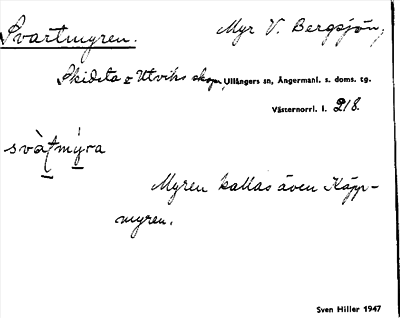 Svartmyren. Myr V. Bergsjön,
Skidsta o Utviks skogar, Ullångers sn, Ångermanl. s. doms. tg.
Västernorrl. l. 218.
svàt̠mý̠ra
Myren kallas även Käpp-
myren.
Sven Hiller 1947